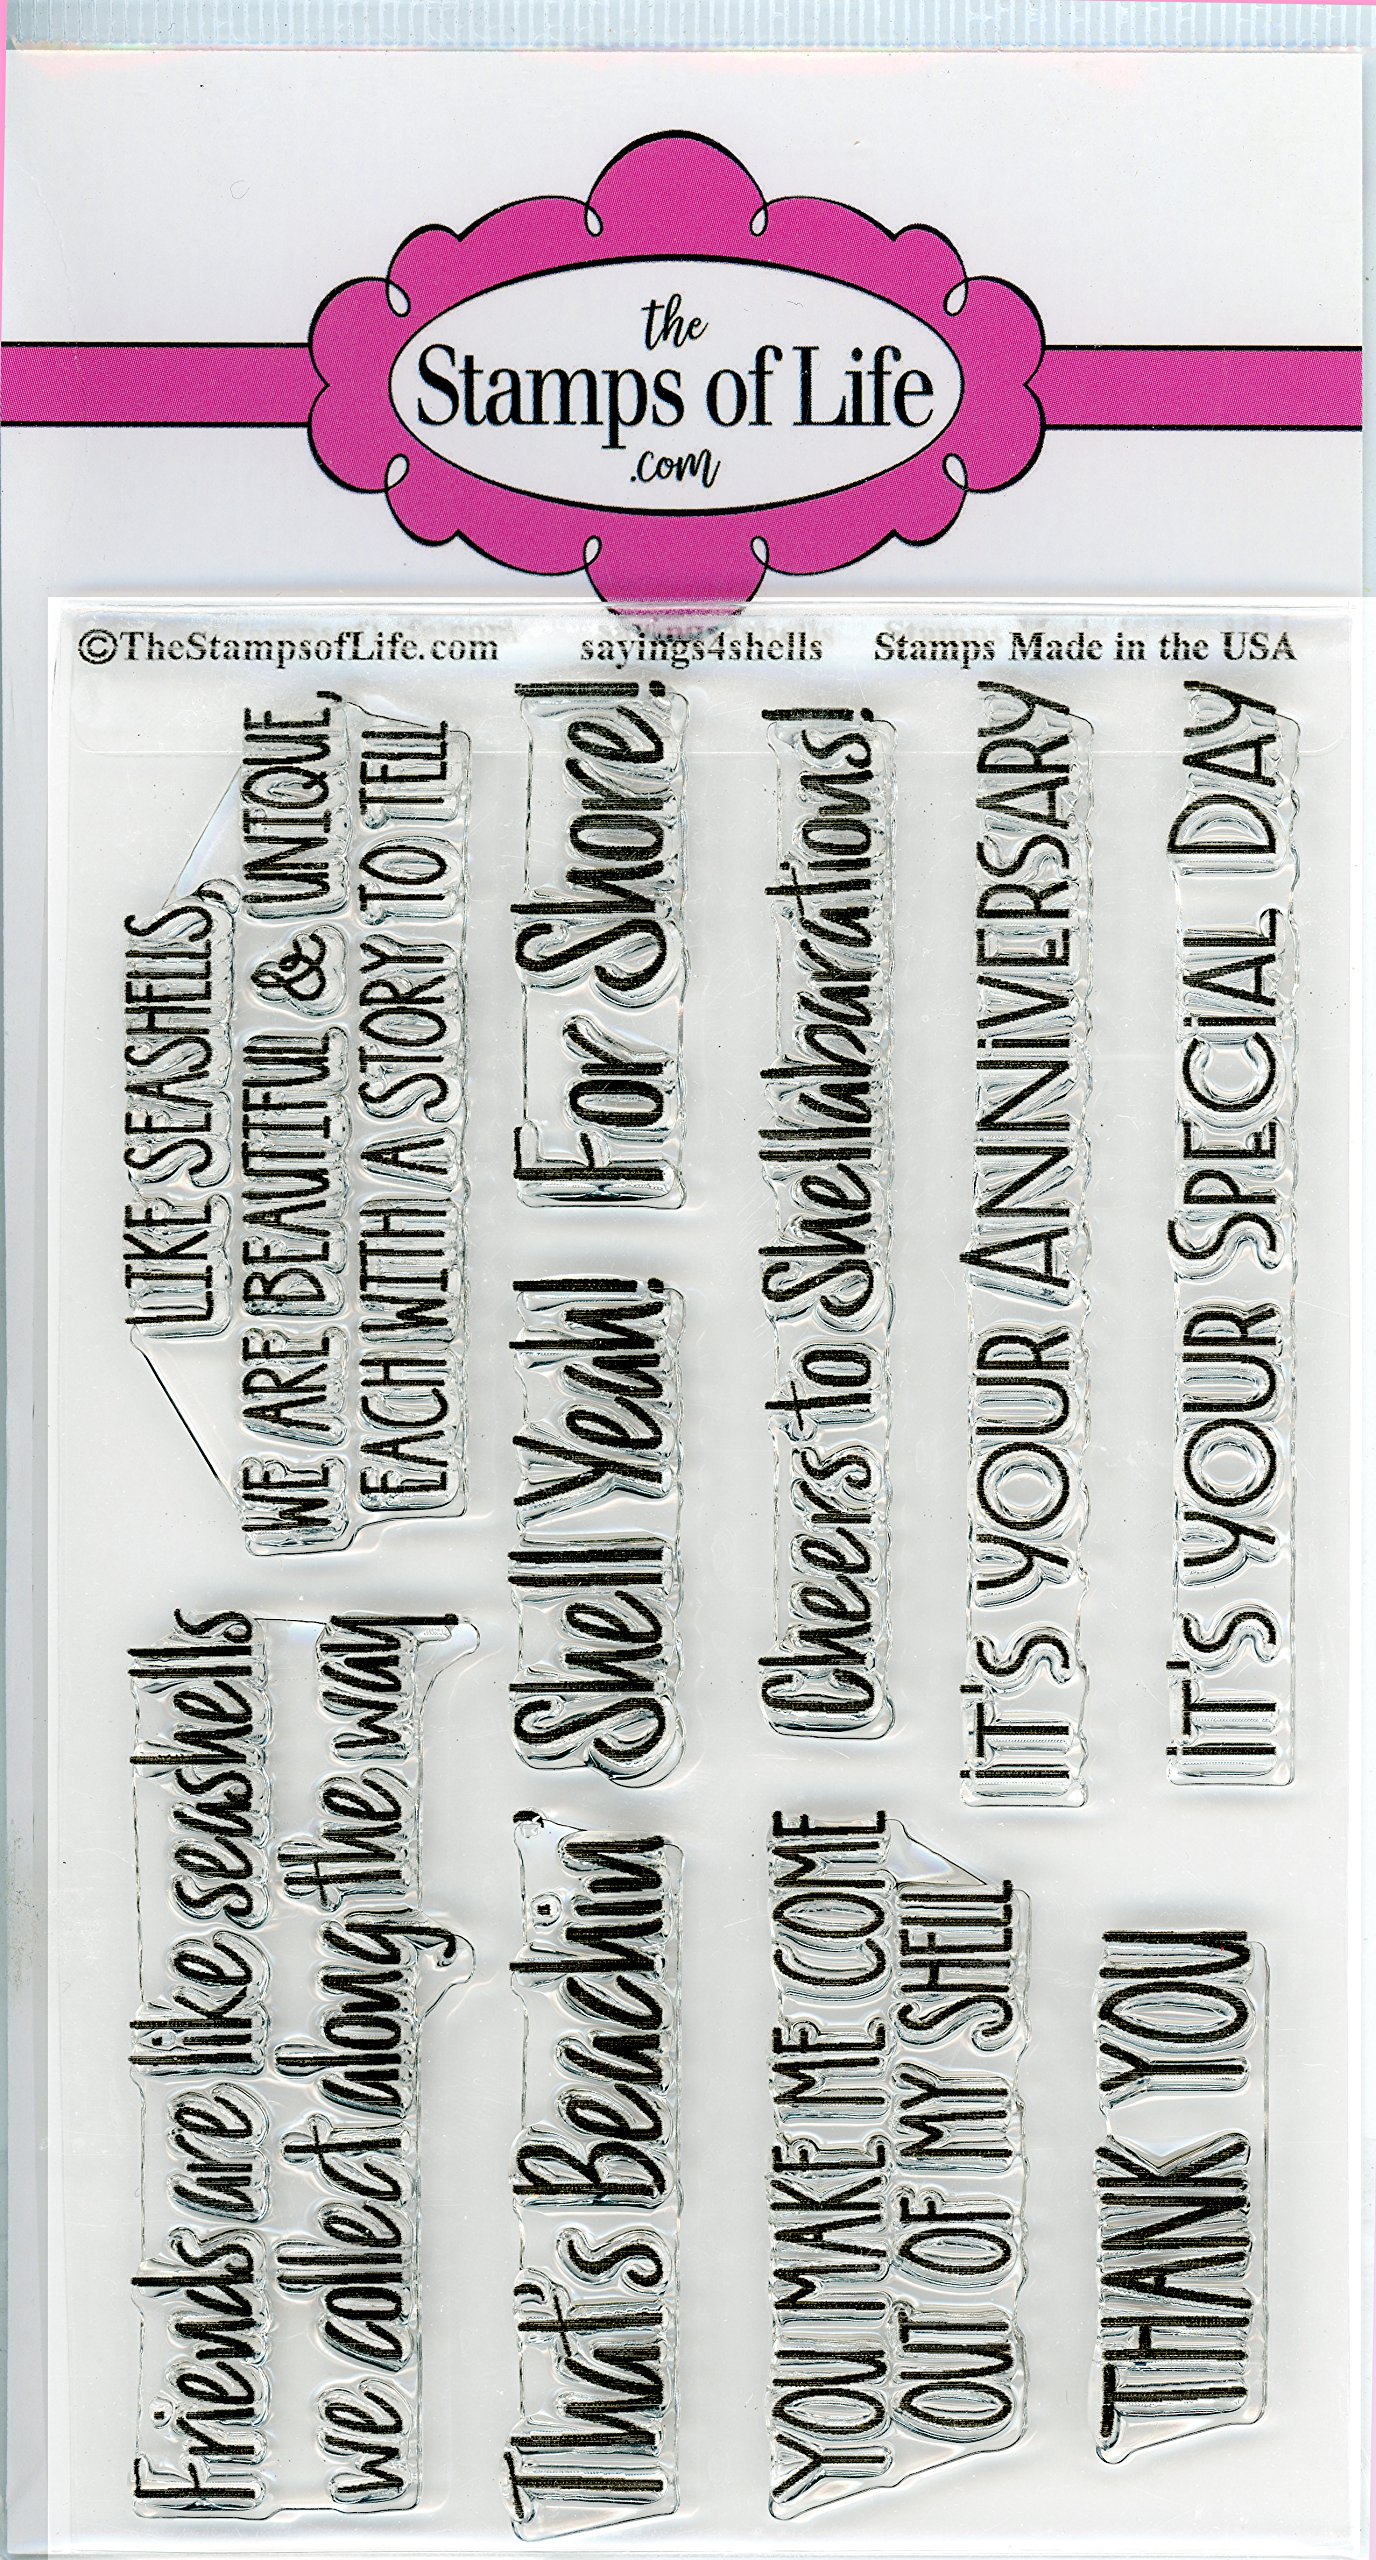 the
Stamps of Life
.com
©TheStampsofLife.com sayings4shells Stamps Made in the USA
Friends are like seashells
we collect along the way
LIKE SEASHELLS,
WE ARE BEAUTIFUL & UNIQUE,
EACH WITH A STORY TO TELL
That's Beachin'
Shell Yeah!
For Shore!
YOU MAKE ME COME
OUT OF MY SHELL
Cheers to Shellabarations!
THANK YOU
iT'S YOUR ANNiVERSARY
iT'S YOUR SPECiAL DAY